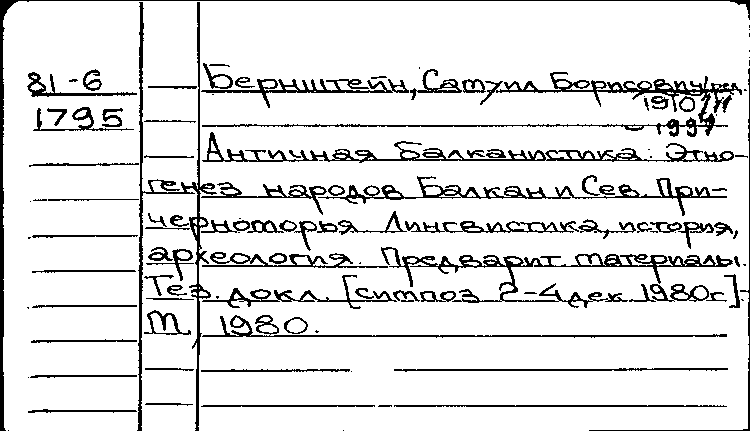 81-6
1795
Бернштейн, Самуил Борисович, ред.
1910
- 1997
Античная балканистика: Этно-
генез народов Балкан и Сев. При-
черноморья. Лингвистика, история,
археология. Предварит. материалы.
Тез. докл. [симпоз. 2-4 дек. 1980г.]-
М, 1980.